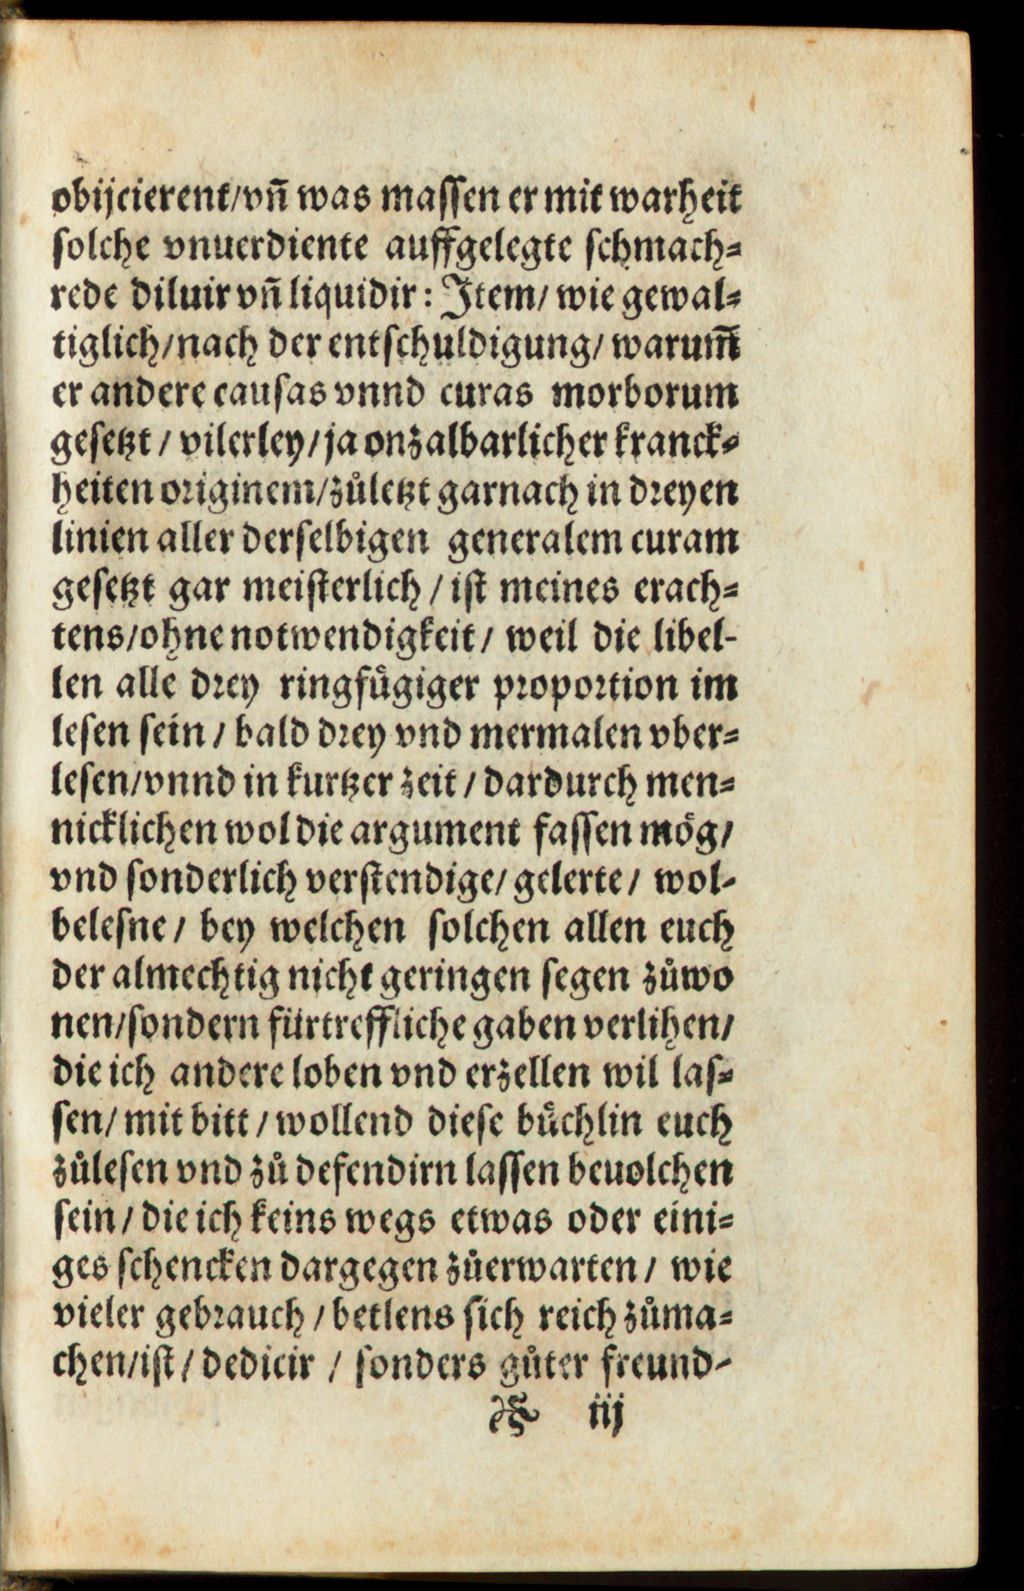 obijcierent/vñ was massen er mit warheit
solche vnuerdiente auffgelegte schmach⸗
rede diluir vñ liquidir: Item/ wie gewal⸗
tiglich/nach der entschuldigung/ warum̃
er andere causas vnnd curas morborum
gesetzt / vilerley/ja onzalbarlicher kranck⸗
heiten originem/zůletzt garnach in dreyen
linien aller derselbigen generalem curam
gesetzt gar meisterlich / ist meines erach⸗
tens/ohne notwendigkeit/ weil die libel-
len alle drey ringfůgiger proportion im
lesen sein / bald drey vnd mermalen vber⸗
lesen/vnnd in kurtzer zeit / dardurch men⸗
nicklichen wol die argument fassen mög/
vnd sonderlich verstendige/ gelerte/ wol-
belesne / bey welchen solchen allen euch
der almechtig nicht geringen segen zůwo
nen/sondern fürtreffliche gaben verlihen/
die ich andere loben vnd erzellen wil las⸗
sen/ mit bitt / wollend diese bůchlin euch
zůlesen vnd zů defendirn lassen beuolchen
sein / die ich keins wegs etwas oder eini⸗
ges schencken dargegen zůerwarten / wie
vieler gebrauch / betlens sich reich zůma⸗
chen/ist / dedicir / sonders gůter freund-
iij